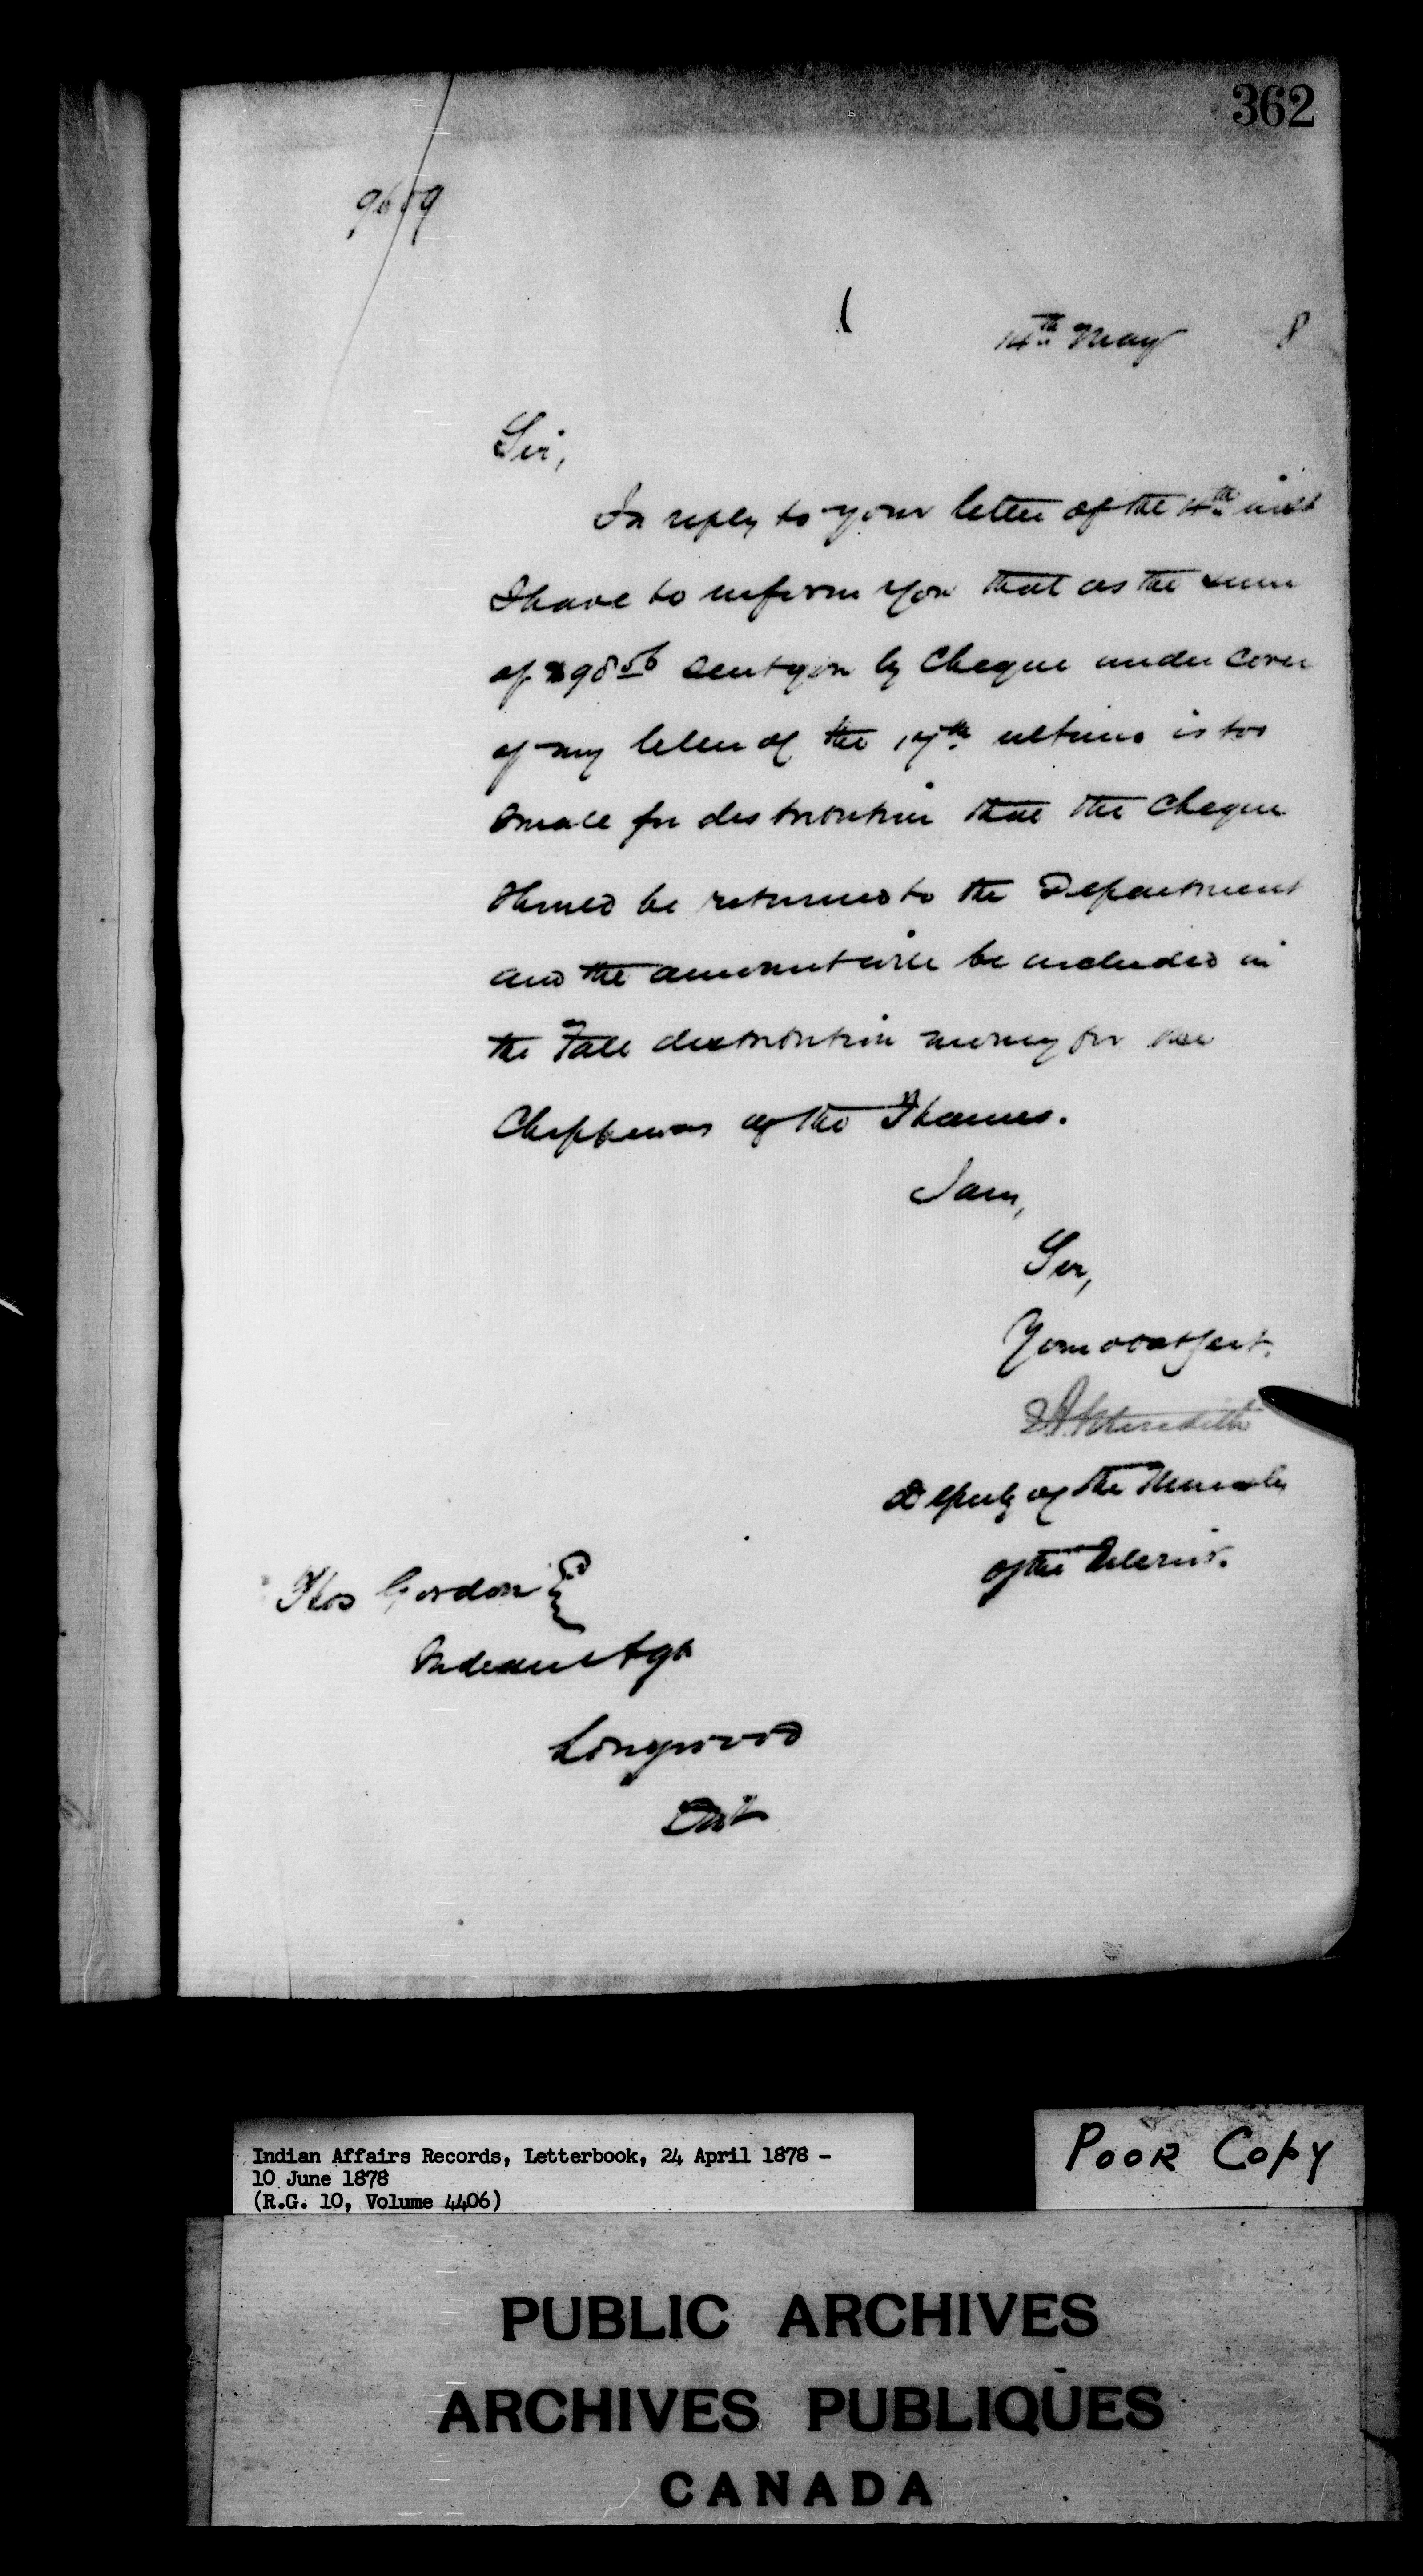 362
9659
14th May 8
Sir,
In reply to your letter of the 4th inst
I have to inform you that as the sum
of $98 56 sent you by Cheque under cover
of my letter of the 17th ultimo is too
small for distribution that the Cheque
should be returned to the Department
and the amount will be included in
the Fall distribution money for the
Chippewas of the Thames.
I am,
Sir,
Your obdt Servt.
E A Meredith
Deputy of the Minister
of the Interior.
Thos Gordon
Indian Agt
Longwood
Ont
Indian Affairs Records, Letterbook, 24 April 1878 -
10 June 1878
(R.G. 10, Volume 4406)
Poor Copy
PUBLIC ARCHIVES
ARCHIVES PUBLIQUES
CANADA